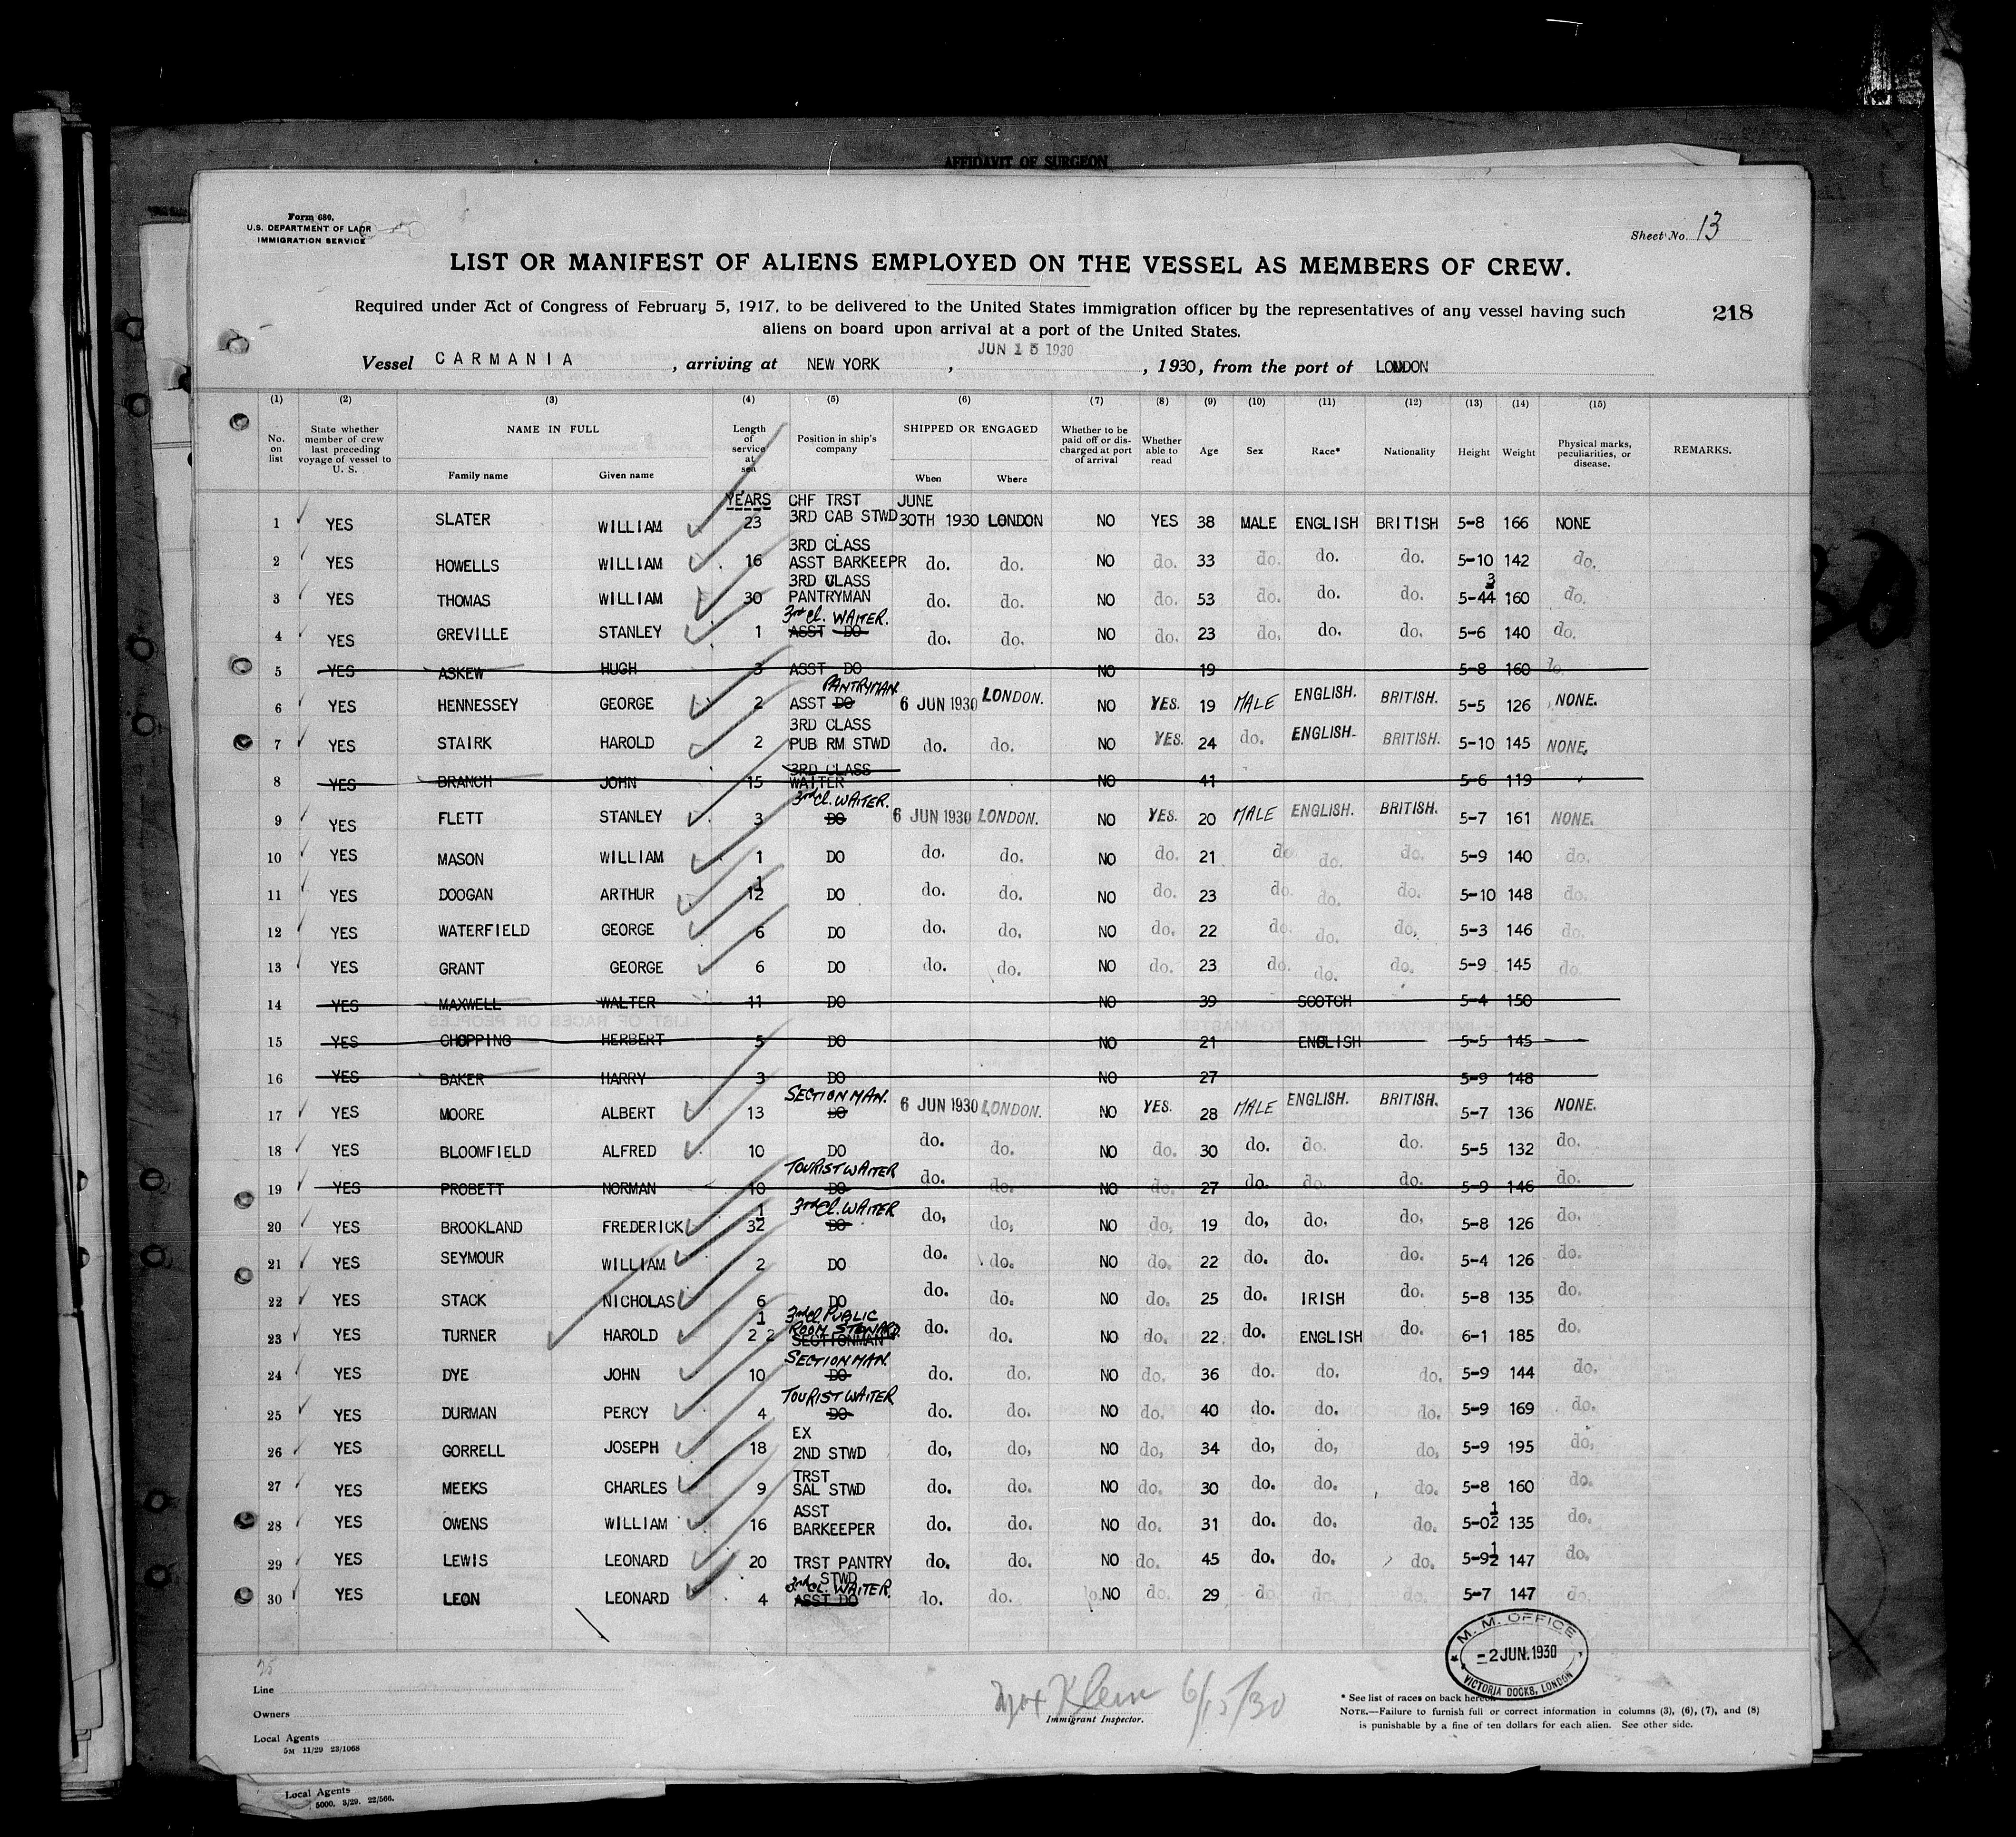 AFFIDAVIT OF SURGEON
Form 680.
U.S. DEPARTMENT OF LABR
IMMIGRATION SERVICE
Sheet No. 13
LIST OR MANIFEST OF ALIENS EMPLOYED ON THE VESSEL AS MEMBERS OF CREW.
Required under Act of Congress of February 5, 1917, to be delivered to the United States immigration officer by the representatives of any vessel having such
aliens on board upon arrival at a port of the United States.
218
JUN 15 1930
Vessel CARMANIA, arriving at NEW YORK, , 1930, from the port of LONDON
(1) (2) (3) (4) (5) (6) (7) (8) (9) (10) (11) (12) (13) (14) (15)
No. on list State whether member of crew last preceding voyage of vessel to U. S. NAME IN FULL Family name Given name Length of service at sea Position in ship's company SHIPPED OR ENGAGED When Where Whether to be paid off or discharged at port of arrival Whether able to read Age Sex Race* Nationality Height Weight Physical marks, peculiarities, or disease. REMARKS.
YEARS CHF TRST JUNE
1 YES SLATER WILLIAM 23 3RD CAB STWD 30TH 1930 LONDON NO YES 38 MALE ENGLISH BRITISH 5-8 166 NONE
3RD CLASS
2 YES HOWELLS WILLIAM 16 ASST BARKEEPR do. do. NO do. 33 do. do. do. 5-10 142 do.
3RD CLASS
3 YES THOMAS WILLIAM 30 PANTRYMAN do. do. NO do. 53 do. do. do. 5-4 3/4 160 do.
3rd Cl. WAITER.
4 YES GREVILLE STANLEY 1 ASST DO do. do. NO do. 23 do. do. do. 5-6 140 do.
5 YES ASKEW HUGH 3 ASST DO NO 19 5-8 160 do.
PANTRYMAN.
6 YES HENNESSEY GEORGE 2 ASST DO 6 JUN 1930 LONDON. NO YES. 19 MALE ENGLISH. BRITISH. 5-5 126 NONE.
3RD CLASS
7 YES STAIRK HAROLD 2 PUB RM STWD do. do. NO YES. 24 do. ENGLISH- BRITISH. 5-10 145 NONE.
3RD CLASS
8 YES BRANCH JOHN 15 WAITER NO 41 5-6 119
3rd Cl. WAITER.
9 YES FLETT STANLEY 3 DO 6 JUN 1930 LONDON. NO YES. 20 MALE ENGLISH. BRITISH. 5-7 161 NONE.
10 YES MASON WILLIAM 1 DO do. do. NO do. 21 do do. do. 5-9 140 do.
11 YES DOOGAN ARTHUR 1 1/2 DO do. do. NO do. 23 do. do. do. 5-10 148 do.
12 YES WATERFIELD GEORGE 6 DO do. do. NO do. 22 do. do. do. 5-3 146 do.
13 YES GRANT GEORGE 6 DO do. do. NO do. 23 do. do. do. 5-9 145 do.
14 YES MAXWELL WALTER 11 DO NO 39 SCOTCH 5-4 150
15 YES CHOPPING HERBERT 5 DO NO 21 ENGLISH 5-5 145
16 YES BAKER HARRY 3 DO NO 27 5-9 148
SECTION MAN.
17 YES MOORE ALBERT 13 DO 6 JUN 1930 LONDON. NO YES. 28 MALE ENGLISH. BRITISH. 5-7 136 NONE.
18 YES BLOOMFIELD ALFRED 10 DO do. do. NO do. 30 do. do. do. 5-5 132 do.
TOURIST WAITER
19 YES PROBETT NORMAN 10 DO do. do. NO do. 27 do. do. do. 5-9 146 do.
3rd Cl. WAITER
20 YES BROOKLAND FREDERICK 3 1/2 DO do. do. NO do. 19 do. do. do. 5-8 126 do.
21 YES SEYMOUR WILLIAM 2 DO do. do. NO do. 22 do. do. do. 5-4 126 do.
22 YES STACK NICHOLAS 6 DO do. do. NO do. 25 do. IRISH do. 5-8 135 do.
3rd Cl. PUBLIC
ROOM STEWARD.
23 YES TURNER HAROLD 2 1/2 SECTIONMAN do. do. NO do. 22 do. ENGLISH do. 6-1 185 do.
SECTION MAN.
24 YES DYE JOHN 10 DO do. do. NO do. 36 do. do. do. 5-9 144 do.
TOURIST WAITER
25 YES DURMAN PERCY 4 DO do. do. NO do. 40 do. do. do. 5-9 169 do.
EX
26 YES GORRELL JOSEPH 18 2ND STWD do. do. NO do. 34 do. do. do. 5-9 195 do.
TRST
27 YES MEEKS CHARLES 9 SAL STWD do. do. NO do. 30 do. do. do. 5-8 160 do.
ASST
28 YES OWENS WILLIAM 16 BARKEEPER do. do. NO do. 31 do. do. do. 5-0 1/2 135 do.
29 YES LEWIS LEONARD 20 TRST PANTRY do. do. NO do. 45 do. do. do. 5-9 1/2 147 do.
STWD
3rd Cl. WAITER.
30 YES LEON LEONARD 4 ASST DO do. do. NO do. 29 do do. do. 5-7 147 do.
M. M. OFFICE
-2 JUN. 1930
VICTORIA DOCKS, LONDON
Line
Owners
Local Agents
5M 11/29 23/1068
Klein 6/15/30
Immigrant Inspector.
* See list of races on back hereof.
NOTE.—Failure to furnish full or correct information in columns (3), (6), (7), and (8)
is punishable by a fine of ten dollars for each alien. See other side.
Local Agents
5000. 3/29. 22/566.